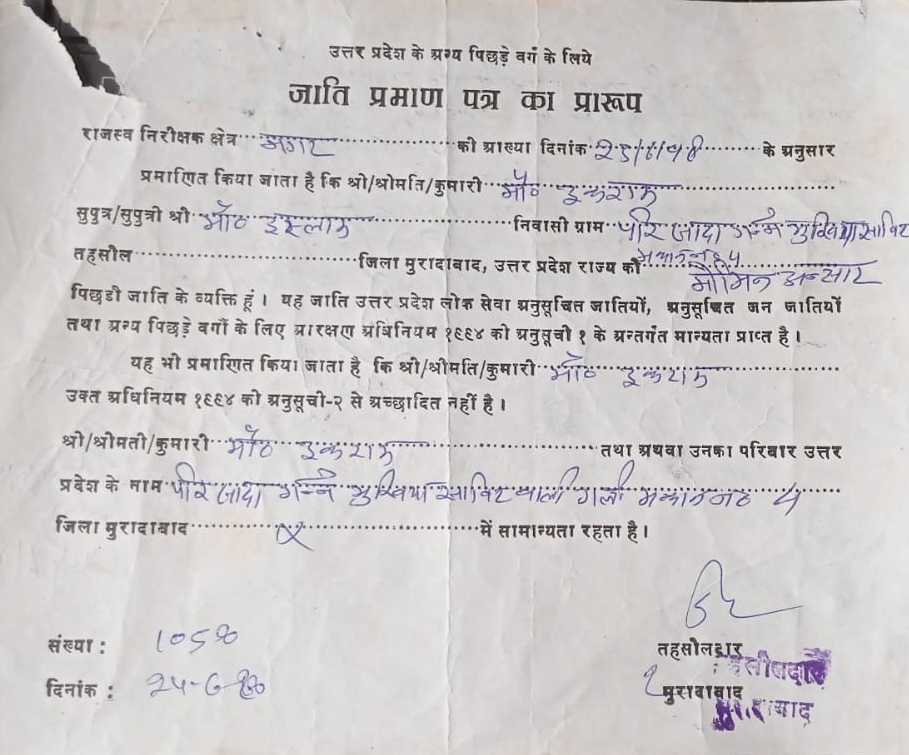 उत्तर प्रदेश के अन्य पिछड़े वर्ग के लिये
जाति प्रमाण पत्र का प्रारूप
राजस्व निरीक्षक क्षेत्र की आख्या दिनांक के अनुसार
प्रमाणित किया जाता है कि श्री/श्रीमति/कुमारी मौ० इकराम
सुपुत्र/सुपुत्री श्री मौ० इस्लाम निवासी ग्राम पीर जादा
तहसील जिला मुरादाबाद, उत्तर प्रदेश राज्य की मोमिन अन्सार
पिछडी जाति के व्यक्ति हूं। यह जाति उत्तर प्रदेश लोक सेवा अनुसूचित जातियों, अनुसूचित जन जातियों
तथा अन्य पिछड़े वर्गों के लिए आरक्षण अधिनियम १९९४ की अनुसूची १ के अन्तर्गत मान्यता प्राप्त है।
यह भी प्रमाणित किया जाता है कि श्री/श्रीमति/कुमारी मौ० इकराम
उक्त अधिनियम १९९४ की अनुसूची-२ से अच्छादित नहीं है।
श्री/श्रीमती/कुमारी मौ० इकराम तथा अथवा उनका परिवार उत्तर
प्रदेश के नाम पीर जादा वाली गली मकान न० 4
जिला मुरादाबाद में सामान्यता रहता है।
संख्या :
दिनांक :
तहसीलदार
मुरादाबाद